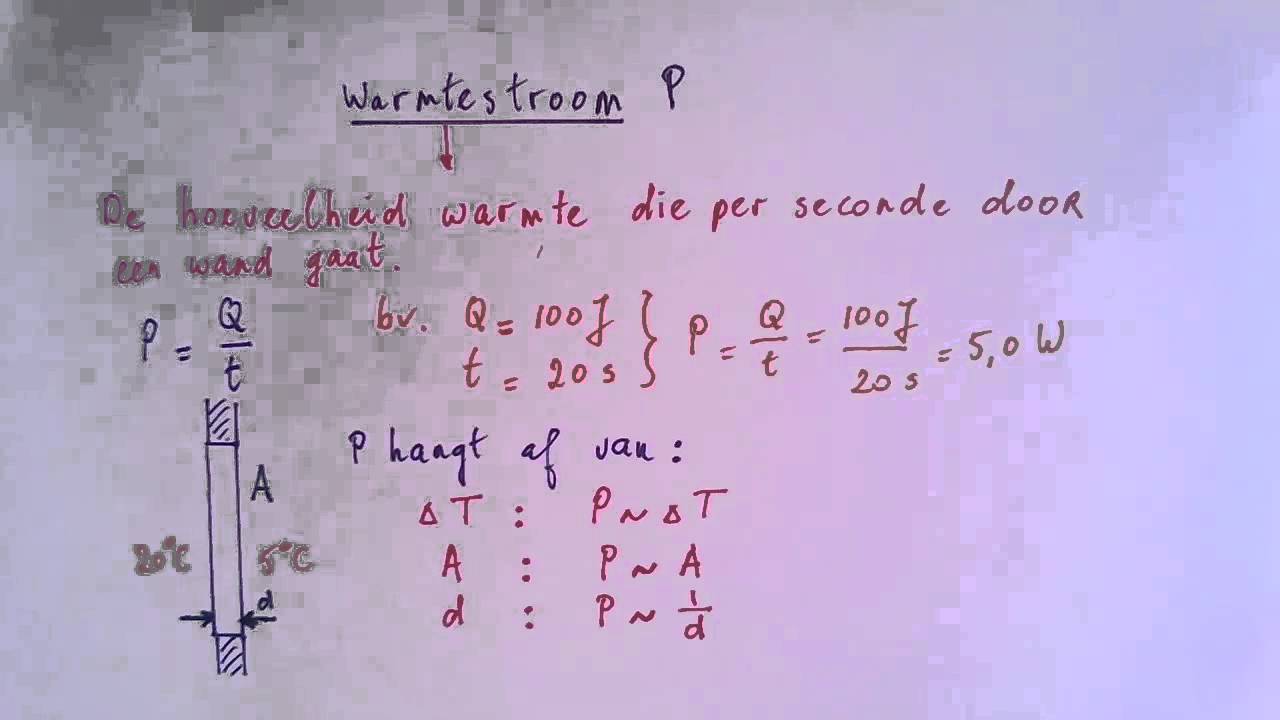 Warmtestroom P
De hoeveelheid warmte die per seconde door
een wand gaat.
P = Q/t
bv. Q = 100 J
t = 20 s
} P = Q/t = 100 J / 20 s = 5,0 W
A
20°C 5°C
d
P hangt af van :
ΔT : P ~ ΔT
A : P ~ A
d : P ~ 1/d